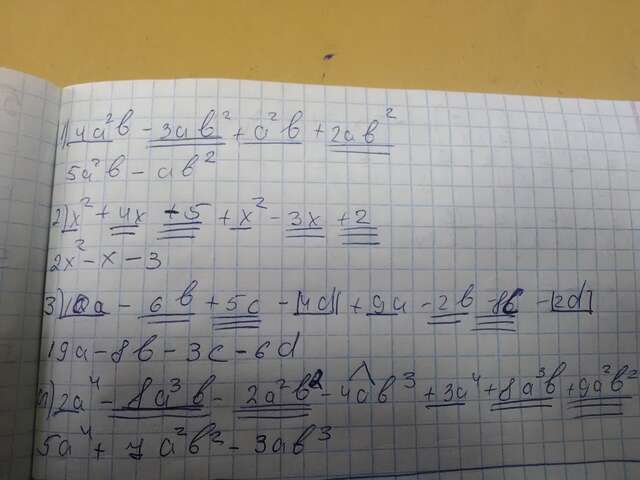 1) 4a²b - 3ab² + a²b + 2ab²
5a²b - ab²
2) x² + 4x + 5 + x² - 3x + 2
2x² - x - 3
3) 10a - 6b + 5c - 4d + 9a - 2b - 8c - 2d
19a - 8b - 3c - 6d
2a⁴ - 8a³b - 2a²b² - 4ab³ + 3a⁴ + 8a³b + 9a²b²
5a⁴ + 7a²b² - 3ab³